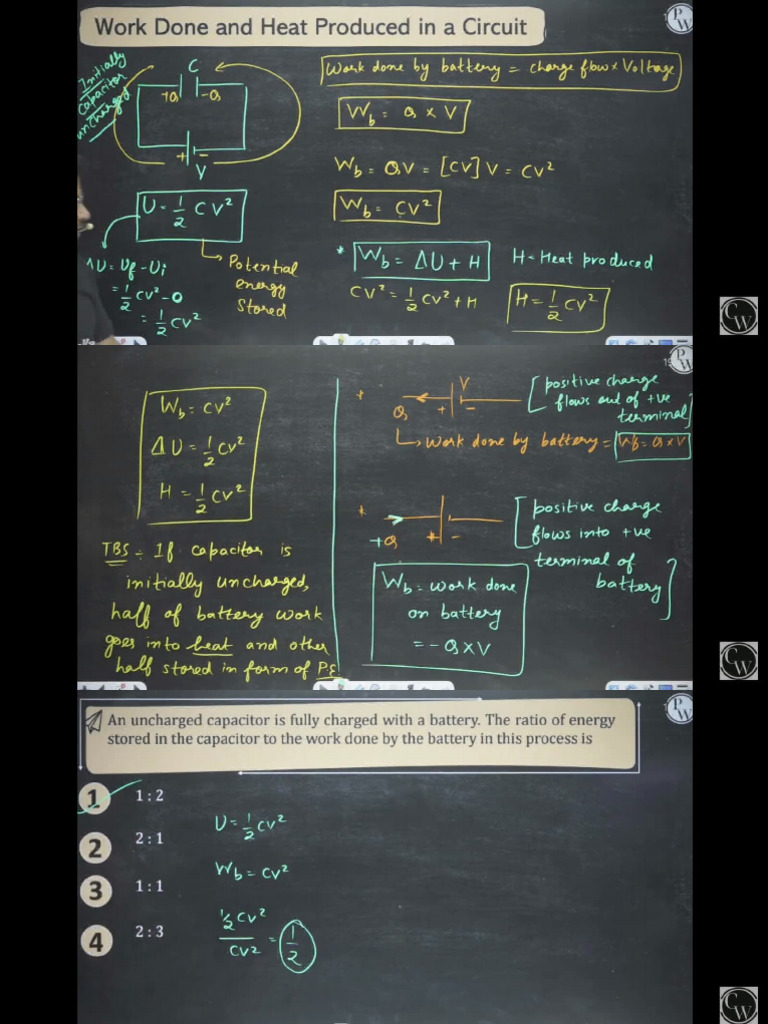 Work Done and Heat Produced in a Circuit
PW
Initially
Capacitor
uncharged
C
+Q -Q
+ -
V
U = 1/2 CV²
ΔU = Uf - Ui
= 1/2 CV² - 0
= 1/2 CV²
Potential
energy
Stored
Work done by battery = charge flow × Voltage
Wb = Q × V
Wb = QV = [CV] V = CV²
Wb = CV²
* Wb = ΔU + H H = Heat produced
CV² = 1/2 CV² + H H = 1/2 CV²
CW
PW
Wb = CV²
ΔU = 1/2 CV²
H = 1/2 CV²
TBS ÷ If capacitor is
initially uncharged,
half of battery work
goes into heat and other
half stored in form of P.E
* V
Q + -
[positive charge
flows out of +ve
terminal]
Work done by battery = Wb = Q × V
*
+Q + -
[positive charge
flows into +ve
terminal of
battery]
Wb = work done
on battery
= - Q × V
CW
PW
An uncharged capacitor is fully charged with a battery. The ratio of energy
stored in the capacitor to the work done by the battery in this process is
1 1 : 2
2 2 : 1
3 1 : 1
4 2 : 3
U = 1/2 CV²
Wb = CV²
1/2 CV² / CV² = 1/2
CW